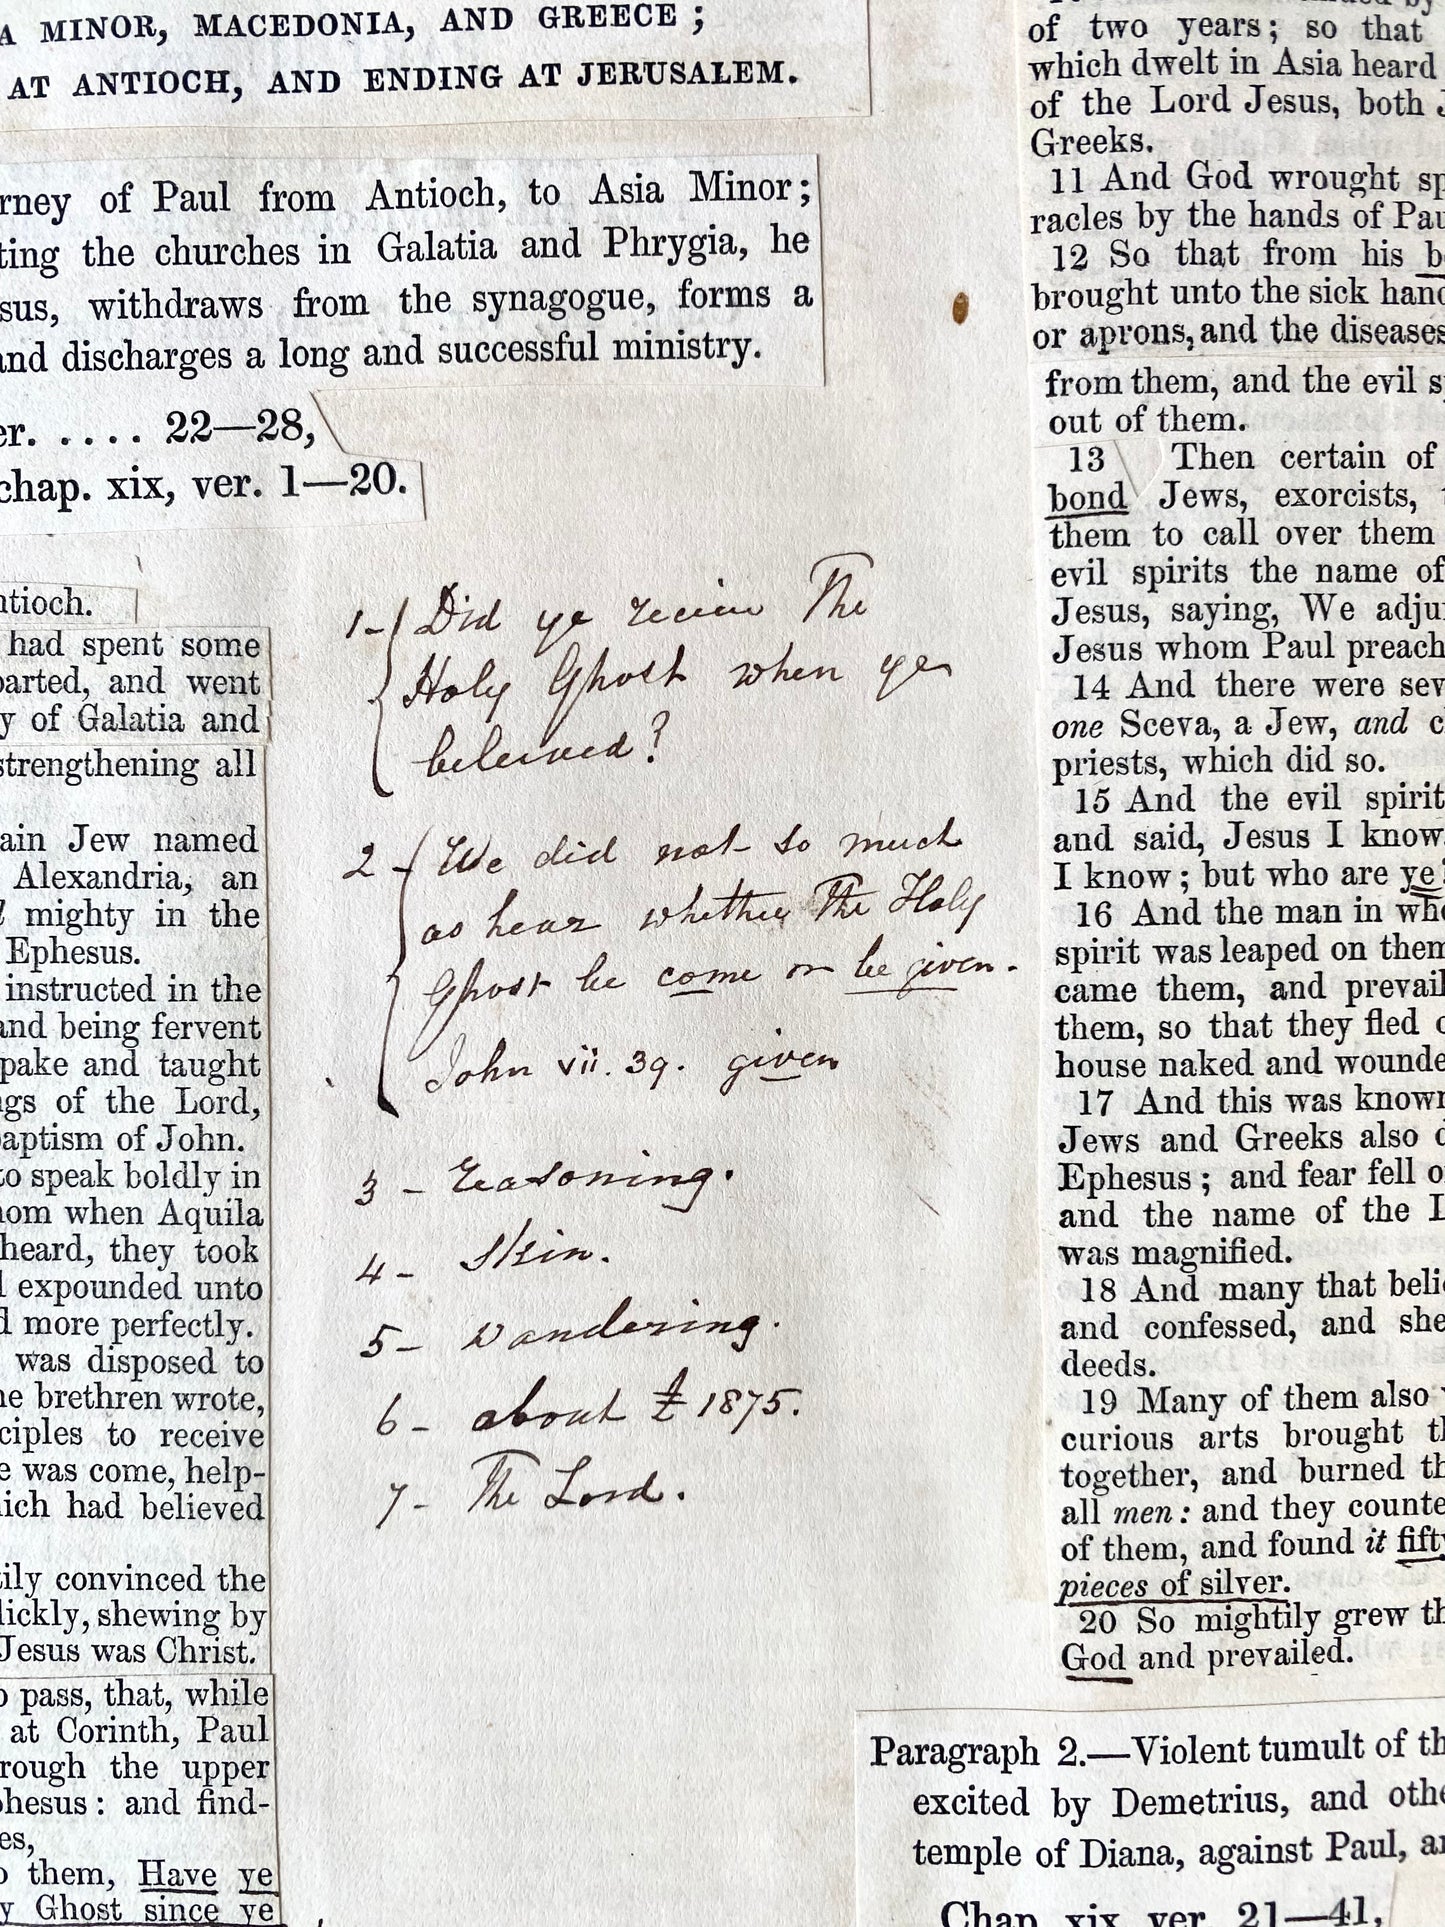 A MINOR, MACEDONIA, AND GREECE ;
AT ANTIOCH, AND ENDING AT JERUSALEM.
rney of Paul from Antioch, to Asia Minor;
ting the churches in Galatia and Phrygia, he
sus, withdraws from the synagogue, forms a
and discharges a long and successful ministry.
er. .... 22—28,
chap. xix, ver. 1—20.
ntioch.
had spent some
parted, and went
y of Galatia and
strengthening all
ain Jew named
Alexandria, an
mighty in the
Ephesus.
instructed in the
and being fervent
pake and taught
ngs of the Lord,
baptism of John.
to speak boldly in
hom when Aquila
heard, they took
l expounded unto
d more perfectly.
was disposed to
he brethren wrote,
ciples to receive
e was come, help-
hich had believed
tily convinced the
lickly, shewing by
Jesus was Christ.
o pass, that, while
at Corinth, Paul
rough the upper
phesus: and find-
es,
o them, Have ye
y Ghost since ye
1- Did ye receive The
Holy Ghost when ye
beleived?
2- We did not so much
as hear whether The Holy
Ghost be come or be given.
John vii. 39. given
3 - reasoning.
4 - Skin.
5 - wandering.
6 - about £ 1875.
7 - The Lord.
of two years; so that
which dwelt in Asia heard
of the Lord Jesus, both J
Greeks.
11 And God wrought sp
racles by the hands of Pau
12 So that from his b
brought unto the sick hand
or aprons, and the diseases
from them, and the evil s
out of them.
13 Then certain of
bond Jews, exorcists, t
them to call over them
evil spirits the name of
Jesus, saying, We adju
Jesus whom Paul preach
14 And there were sev
one Sceva, a Jew, and c
priests, which did so.
15 And the evil spirit
and said, Jesus I know
I know; but who are ye?
16 And the man in who
spirit was leaped on them
came them, and prevail
them, so that they fled o
house naked and wounde
17 And this was known
Jews and Greeks also d
Ephesus; and fear fell o
and the name of the L
was magnified.
18 And many that belie
and confessed, and she
deeds.
19 Many of them also
curious arts brought th
together, and burned th
all men: and they counte
of them, and found it fifty
pieces of silver.
20 So mightily grew th
God and prevailed.
Paragraph 2.—Violent tumult of th
excited by Demetrius, and othe
temple of Diana, against Paul, an
Chap xix ver 21—41.